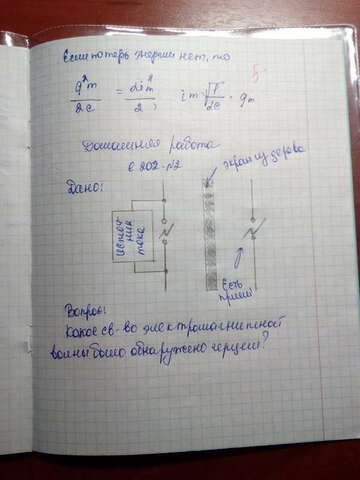 Если потерь энергии нет, то
5
q²m/2c = Li²m/2; im √1/2c · qm
Домашняя работа
с 202 - №2
Дано:
экран из дерева
источ
ник
тока
Есть
прием
Вопрос:
Какое св-во электромагнитной
волны было обнаружено герцем?